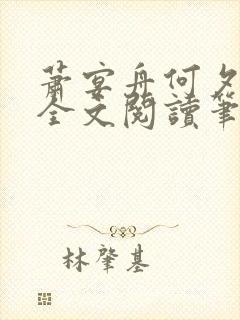 蕭宴舟何夕
全文閱讀筆
林肇基